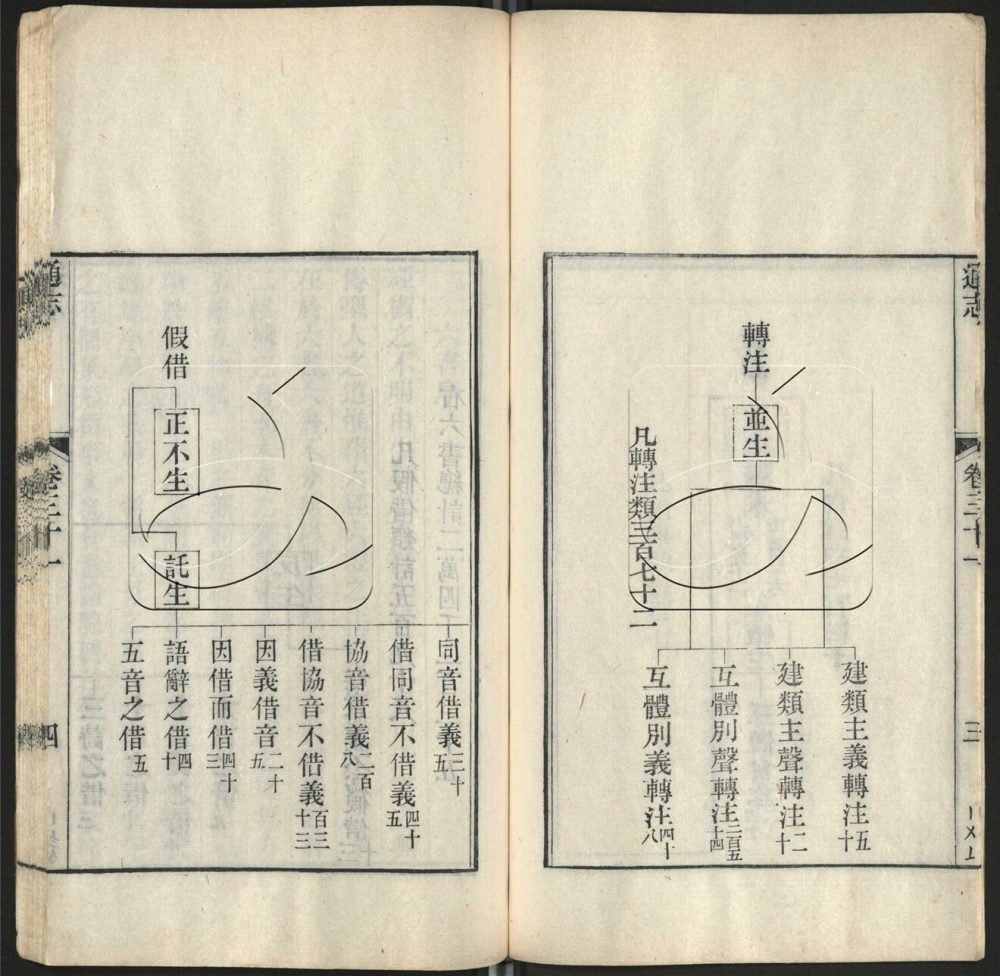 通志
卷三十一
三
轉注
並生
建類主義轉注五十
建類主聲轉注二十
互體別聲轉注二百五十四
互體別義轉注四十八
凡轉注類三百七十二
假借
正不生
託生
同音借義三十五
借同音不借義四十五
協音借義二百八
借協音不借義百三十三
因義借音二十五
因借而借四十三
語辭之借四十
五音之借五
通志
卷三十一
四